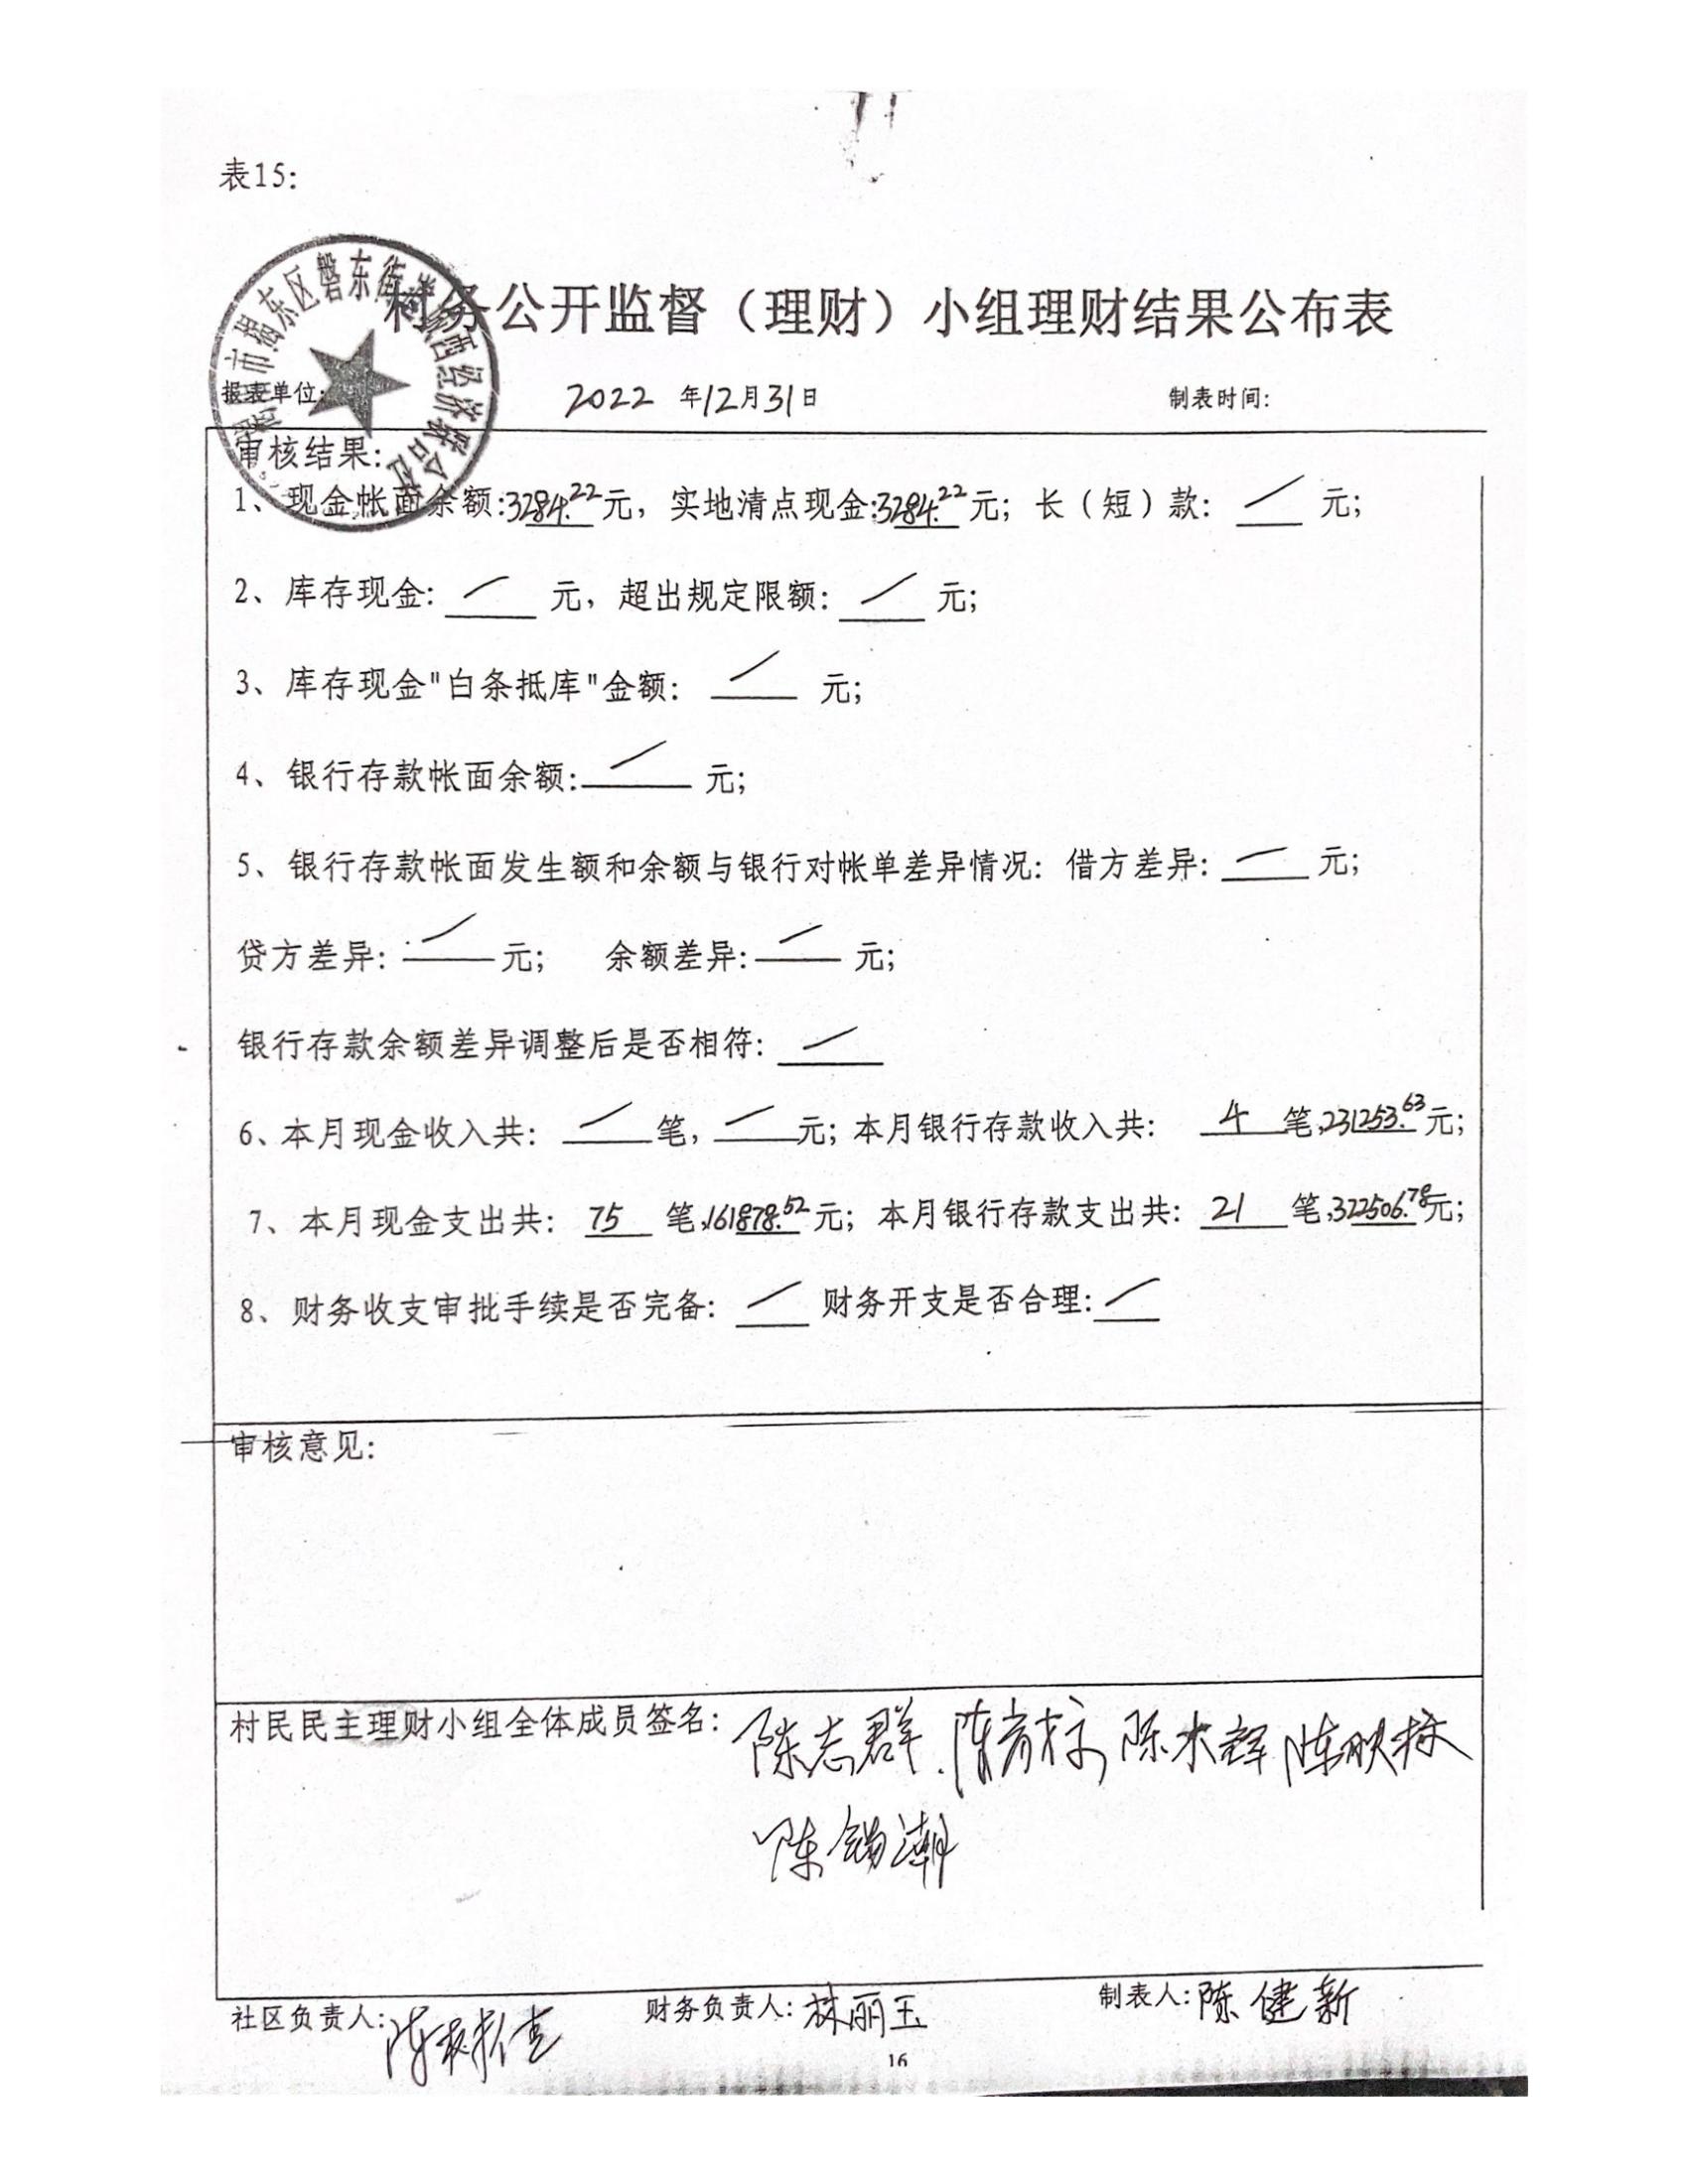 表15:
村务公开监督（理财）小组理财结果公布表
报表单位: 2022 年12月31日 制表时间:
审核结果:
1、现金帐面余额:3284.22元，实地清点现金:3284.22元；长（短）款: / 元；
2、库存现金: / 元，超出规定限额: / 元；
3、库存现金"白条抵库"金额: / 元；
4、银行存款帐面余额: / 元；
5、银行存款帐面发生额和余额与银行对帐单差异情况: 借方差异: / 元；
贷方差异: / 元； 余额差异: / 元；
银行存款余额差异调整后是否相符: /
6、本月现金收入共: / 笔, / 元；本月银行存款收入共: 4 笔,231253.63元；
7、本月现金支出共: 75 笔,161878.52元；本月银行存款支出共: 21 笔,322506.78元；
8、财务收支审批手续是否完备: / 财务开支是否合理: /
审核意见:
村民民主理财小组全体成员签名: 陈志群. 陈 陈木辉 陈映
陈锡潮
社区负责人: 陈 财务负责人: 林丽玉 制表人: 陈健新
16